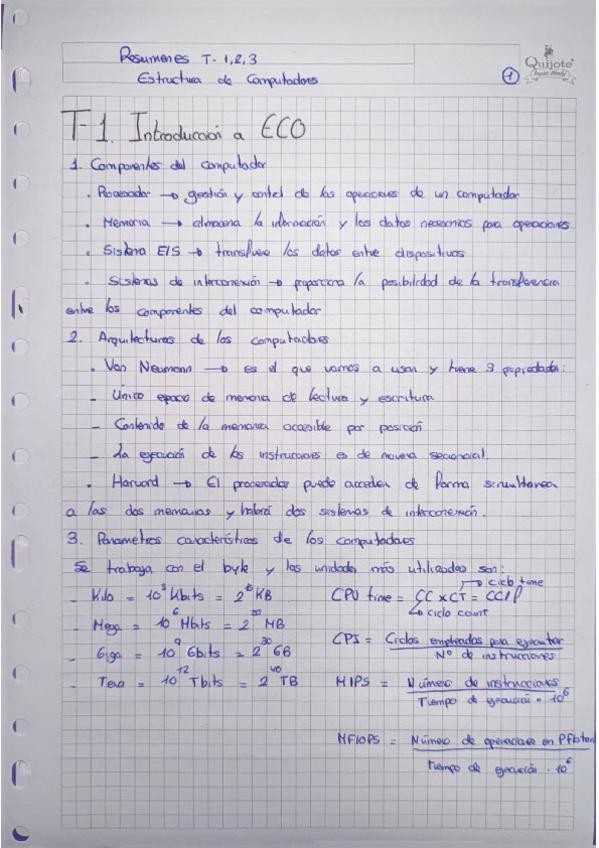 Resumenes T-1,2,3
Estructura de Computadores
1
Quijote
T-1. Introducción a ECO
1. Componentes del computador
• Procesador → gestión y control de las operaciones de un computador
• Memoria → almacena la información y los datos necesarios para operaciones
• Sistema E/S → transfiere los datos entre dispositivos
• Sistemas de interconexión → proporciona la posibilidad de la transferencia
entre los componentes del computador
2. Arquitecturas de los computadores
• Von Neumann → es el que vamos a usar y tiene 3 propiedades:
- Único espacio de memoria de lectura y escritura
- Contenido de la memoria accesible por posición
- La ejecución de las instrucciones es de manera secuencial
• Harvard → El procesador puede acceder de forma simultanea
a las dos memorias y habrá dos sistemas de interconexión.
3. Parametros característicos de los computadores
Se trabaja con el byte y las unidades más utilizadas son:
- Kilo = 10^3 Kbits = 2^10 KB
- Mega = 10^6 Mbits = 2^20 MB
- Giga = 10^9 Gbits = 2^30 GB
- Tera = 10^12 Tbits = 2^40 TB
→ ciclo time
CPU time = CC x CT =
→ ciclo count
CPI = Ciclos empleados para ejecutar
Nº de instrucciones
MIPS = Número de instrucciones
Tiempo de ejecución · 10^6
MFlOPS = Número de operaciones en
Tiempo de ejecución · 10^6